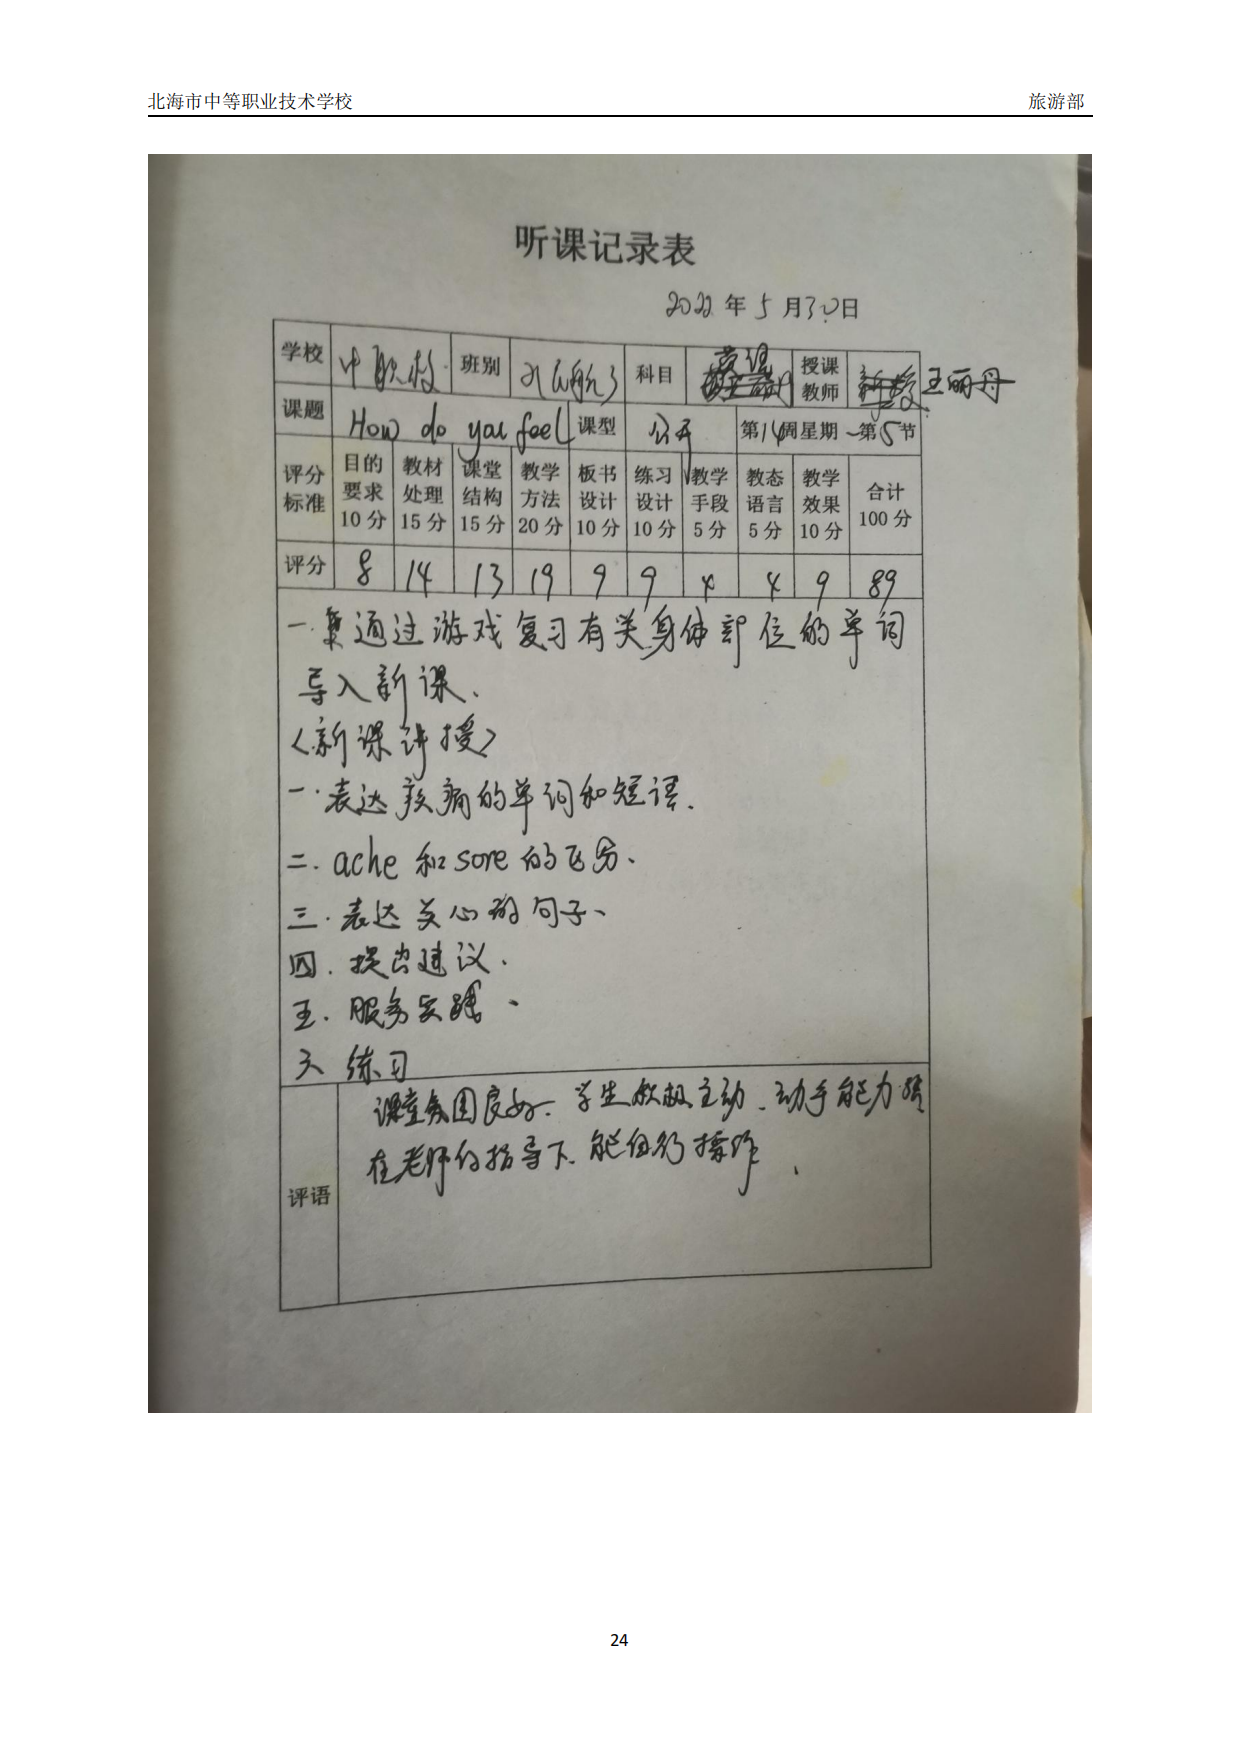 北海市中等职业技术学校 旅游部
听课记录表
2022年5月30日
学校 中职校 班别 21(民航) 科目 英语 授课教师 王丽丹
课题 How do you feel 课型 公开 第14周星期一第5节
评分标准 目的要求10分 教材处理15分 课堂结构15分 教学方法20分 板书设计10分 练习设计10分 教学手段5分 教态语言5分 教学效果10分 合计100分
评分 8 14 13 19 9 9 4 4 9 89
一.通过游戏复习有关身体部位的单词
导入新课、
<新课讲授>
一.表达疾病的单词和短语.
二.ache和sore的区分、
三.表达关心的句子、
四.提出建议.
五.服务实践、
六 练习
评语
课堂氛围良好.学生积极主动.动手能力强
在老师的指导下.能自行操作.
24